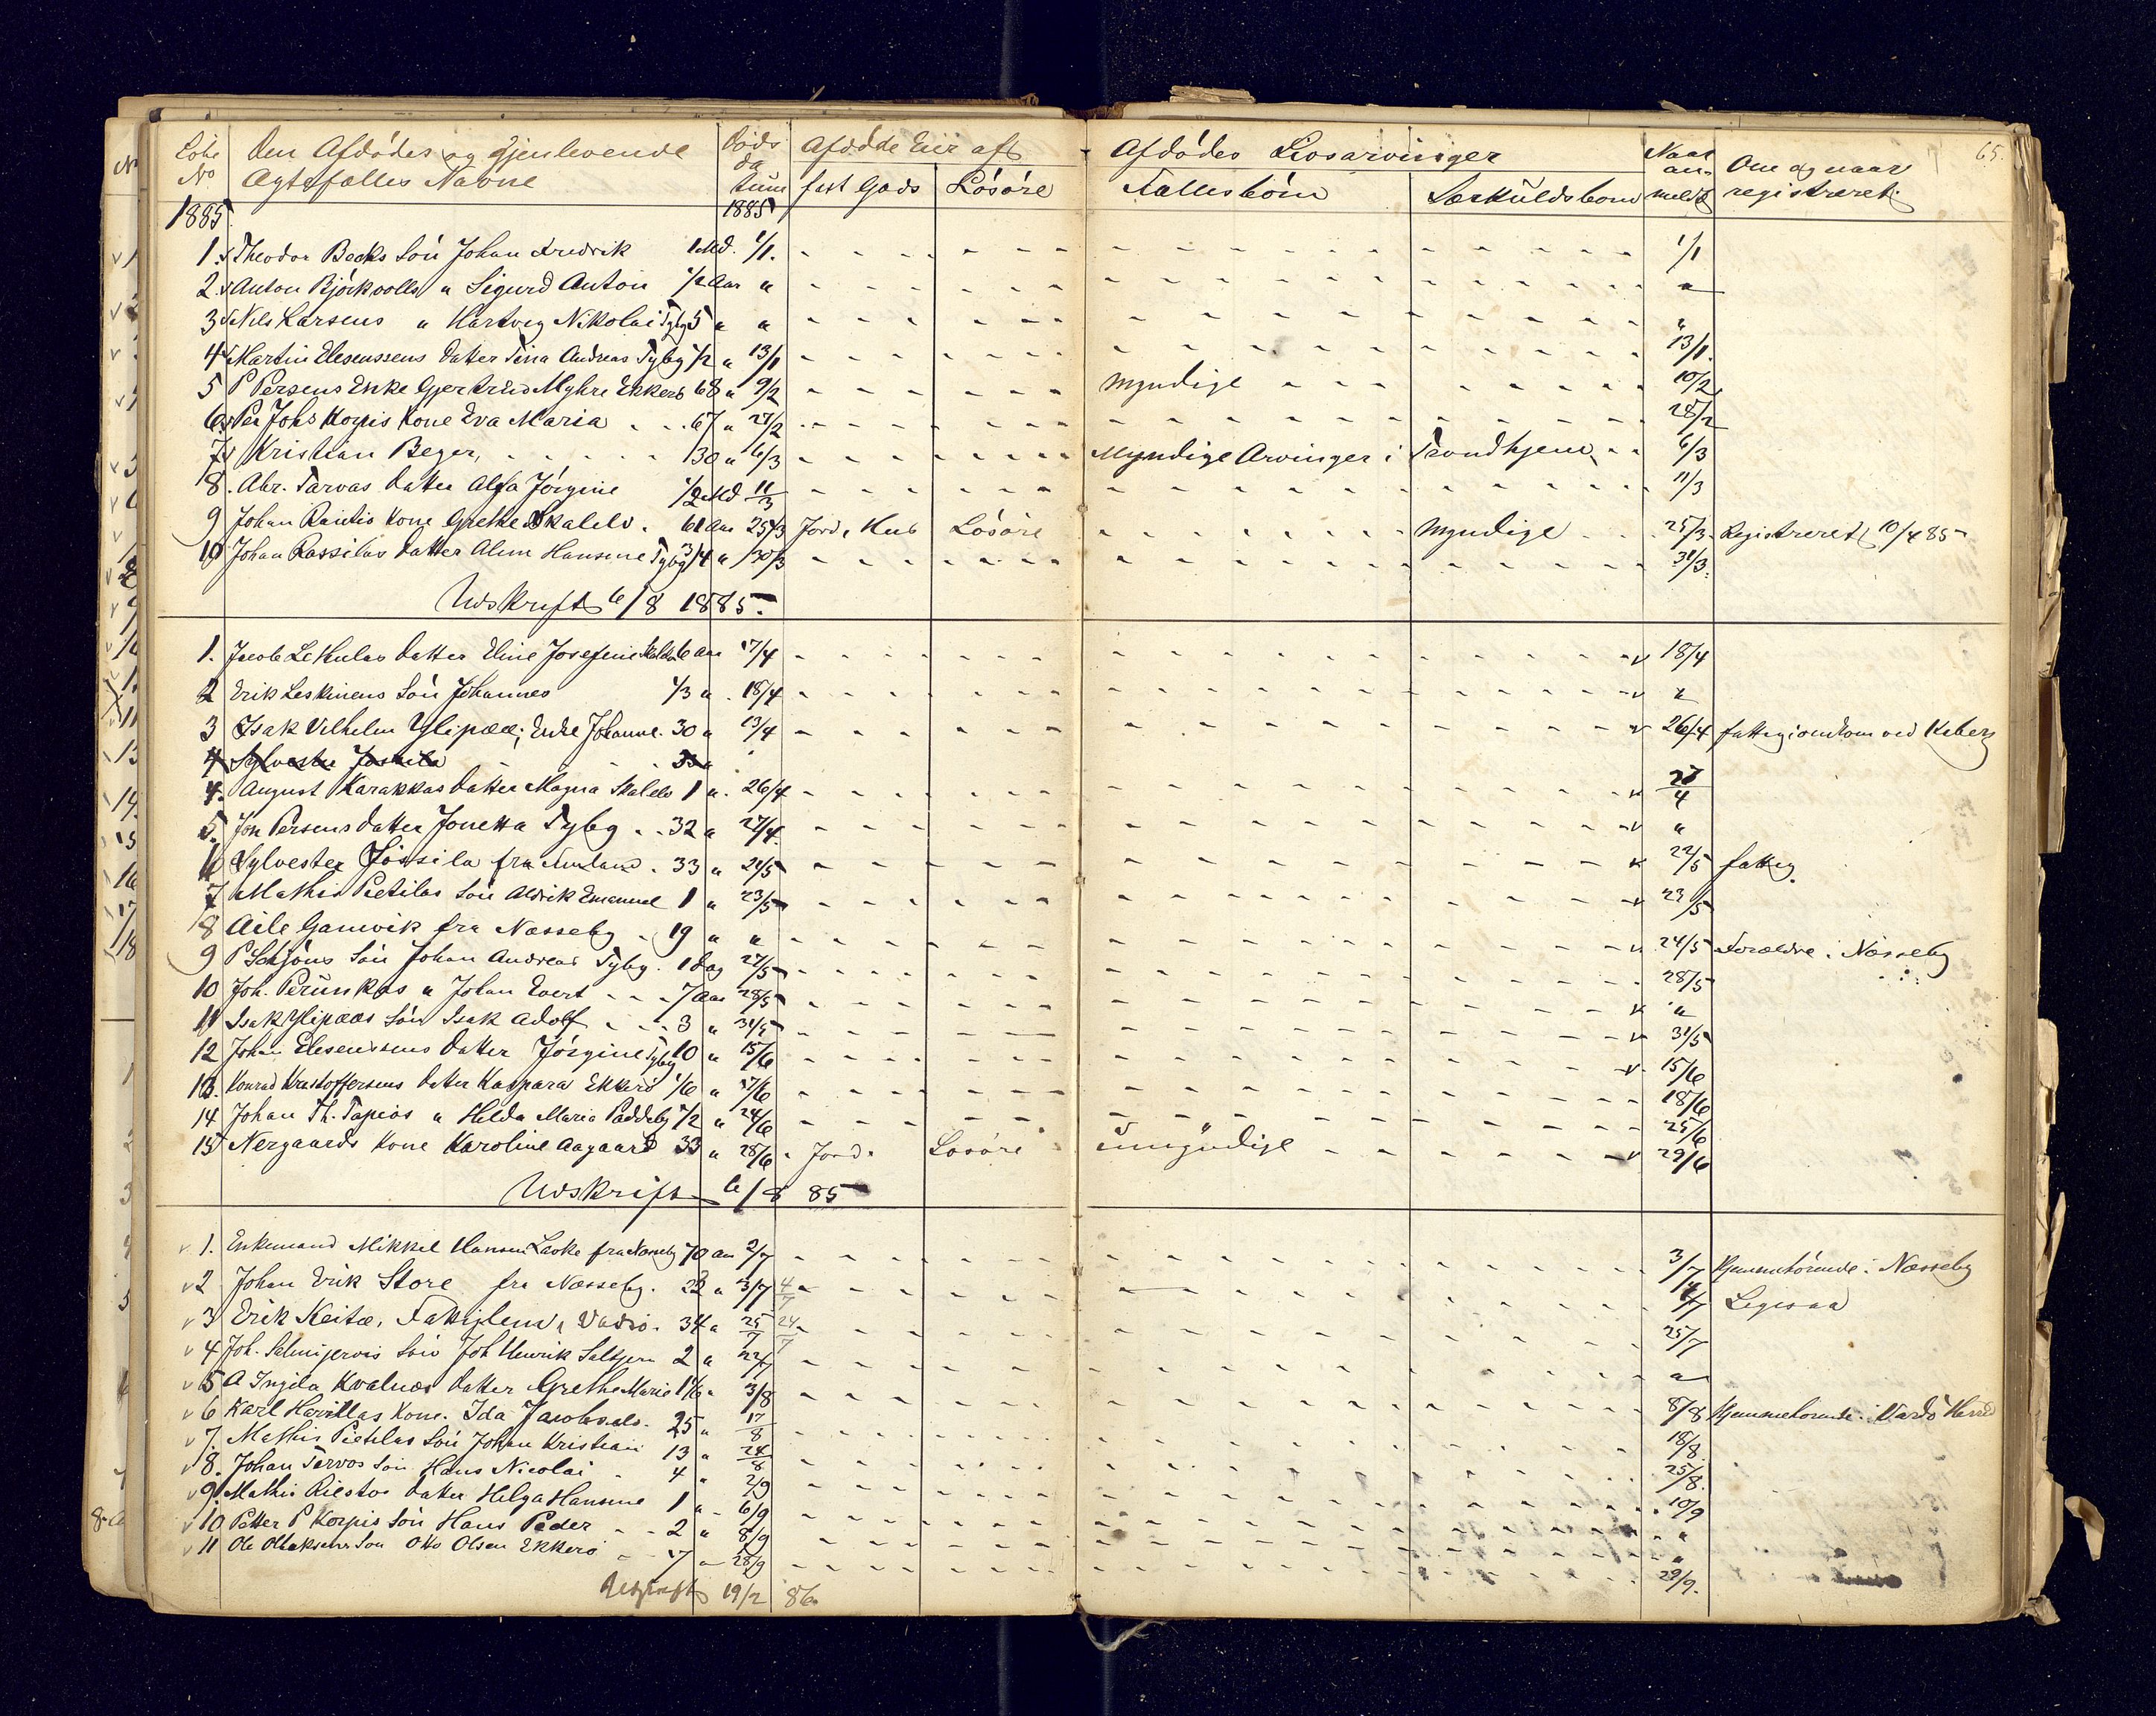 65.
Løbe No | Den Afdødes og Gjenlevende Ægtefælles Navne | Døds da tum | Afdøde Eier af | Afdødes Livsarvinger | Naar an- meldt | Om og naar registreret
fast Gods | Løsøre | Fællesbørn | Særkuldsbørn
1885 | 1885
1. Theodor Becks Søn Johan Fredrik 1 Md. 1/1. 1/1
2. Anton Bjørkvolls " Sigurd Anton 1/2 Aar " "
3 Nils Larsens " Hartvig Nikolai Tybg 5 " " "
4 Martin Elesenssens Datter Tina Andreas Tybg 1/2 " 13/1 13/1.
5 P Persens Enke Gjertrud Myhre Ekkerö 68 " 9/2 Myndige 10/2
6. Per Johs Korpis Kone Eva Maria 67 " 27/2 28/2
7 Kristian Beger, 30 " 6/3 Myndige Arvinger i Trondhjem 6/3
8. Abr. Tarvas Datter Alfa Jørgine 1/2 Md 11/3 11/3
9 Johan Rautio Kone Grethe Skalelv. 61 Aar 25/3 Jord, Hus Løsøre Myndige 25/3. Registreret 10/4 85
10 Johan Rassilas Datter Alma Hansine Tybg 3/4 " 30/3 31/3.
Udskrift 6/8 1885.
1. Jacob Lekulas Datter Eline Josefine Skalelv 6 Aar 17/4 18/4
2 Erik Leskinens Søn Johannes 1/3 " 18/4 "
3 Isak Vilhelm Ylipææ, Enke Johanne. 30 " 13/4 26/4 fattig ved Kiberg
4 Sylvester Jossila 33 "
4. August Karakkas Datter Magna Skalelv 1 " 26/4 27/4
5. Joh Persens Datter Jonetta Tybg 32 " 27/4. "
6 Sylvester Jossila fra Finland. 33 " 21/5 22/5 fattig.
7 Mathis Pietilas Søn Aldrik Emanuel 1 " 23/5 23/5
8 Aile Ganvik fra Næsseby 19 " " 24/5 Forældre i Næsseby
9 P Schjøns Søn Johan Andreas Tybg. 1 Dag 27/5 28/5
10 Joh. Perunkas " Johan Evert 7 Aar 28/5 "
11 Isak Ylipææs Søn Isak Adolf 3 " 31/5 31/5
12 Johan Elesenssens Datter Jørgine Tybg 10 " 15/6 15/6
13. Konrad Kristoffersens Datter Kaspara Ekkerö 1/6 " 17/6 18/6
14 Johan Th. Tapios " Hilda Maria Paddeby 1/2 " 24/6 25/6
15 Nergaards Kone Karoline Aagaard 33 " 28/6 Jord. Løsøre Umyndige 29/6
Udskrift 6/8 85
1. Enkemand Mikkel Hansen Laoke fra Næsseby 70 Aar 2/7 3/7 Hjemmehørende i Næsseby
2 Johan Erik Store fra Næsseby. 22 " 3/7 4/7 4/7
3 Erik Keitæ, Fattiglem, Vadsö. 34 " 25/7 24/7 25/7
4 Joh. Salmijervis Søn Joh Henrik Saltjern 2 " 22/7 "
5 A Ingila Kvalnæs Datter Grethe Marie 1 1/6 " 3/8 8/8 Hjemmehørende i Vardö Herred
6 Karl Harillas Kone. Ida Jacobselv. 25 " 17/8 18/8.
7. Mathis Pietilas Søn Johan Kristian 13 " 24/8 25/8.
8. Johan Tervos Søn Hans Nicolai 4 " 2/9 10/9
9. Mathis Riestos Datter Helga Hansine 1 " 6/9 "
10 Petter P Korpis Søn Hans Peder 2 " 8/9 "
11 Ole Olleksens Søn Otto Olsen Ekkerö 7 " 28/9 29/9.
Udskrift 19/2 86.